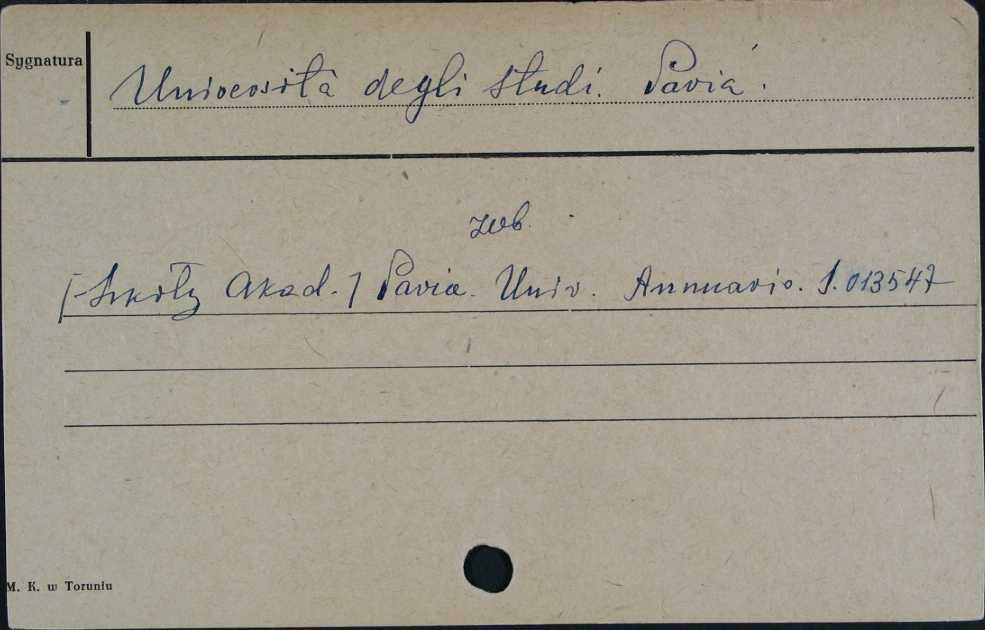 Sygnatura
Università degli studi. Pavia.
zob.
[Szkoły Akad.] Pavia. Univ. Annuario. S.013547
M. K. w Toruniu